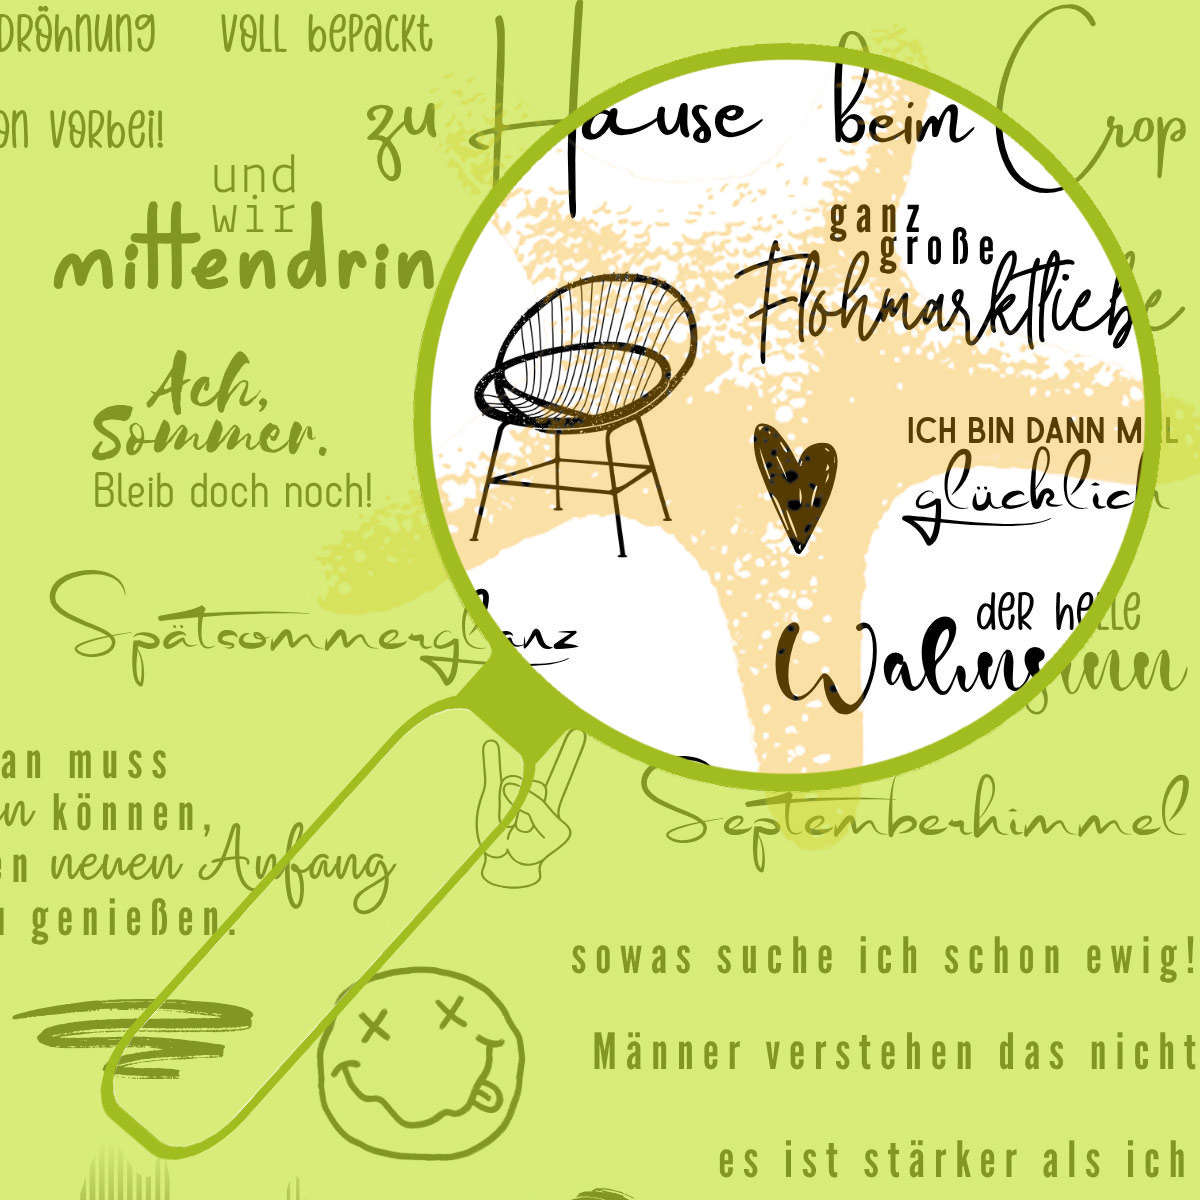 DRÖHNUNG
VOLL BEPACKT
zu Hause
beim Crop
ON VORBEI!
und
wir
mittendrin
ganz
große
Flohmarktliebe
Ach,
Sommer.
Bleib doch noch!
ICH BIN DANN MAL
glücklich
Spätsommerglanz
DER HELLE
Wahnsinn
an muss
en können,
en neuen Anfang
u genießen.
Septemberhimmel
sowas suche ich schon ewig!
Männer verstehen das nicht
es ist stärker als ich